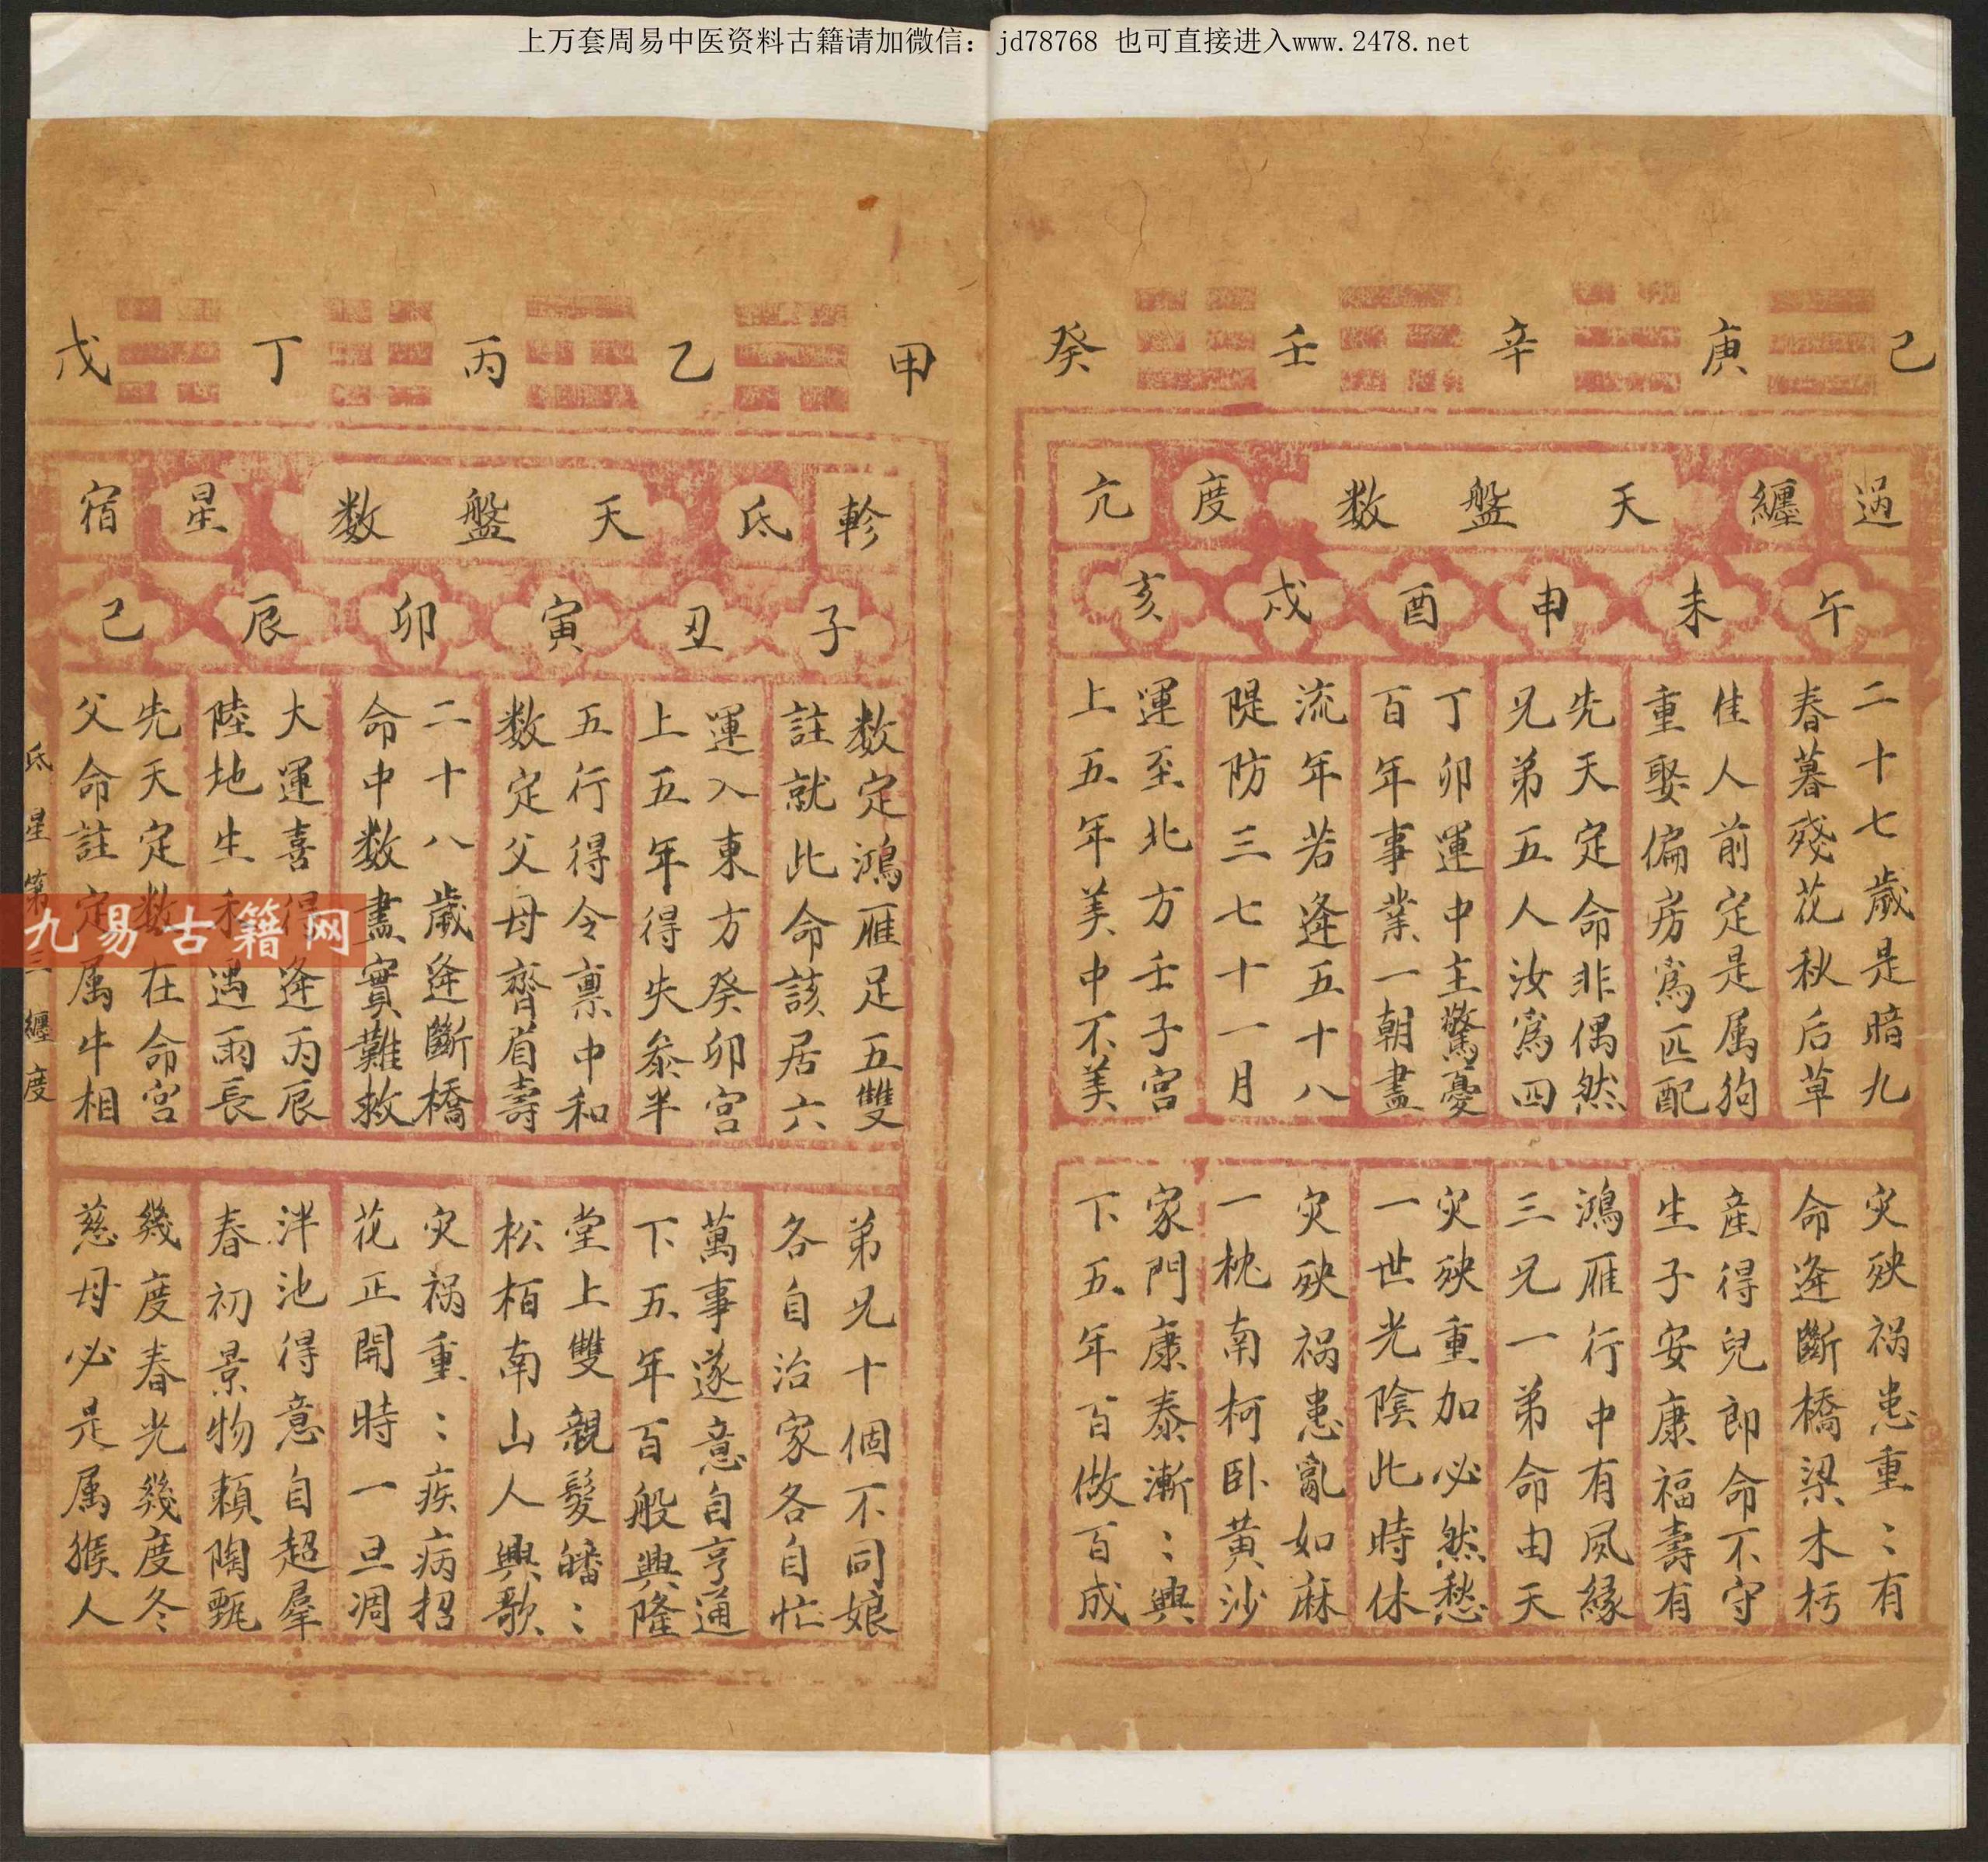 上万套周易中医资料古籍请加微信：jd78768 也可直接进入www.2478.net
己 庚 辛 壬 癸
過 纏 天 盤 数 度 亢
午 未 申 酉 戌 亥
二十七歲是暗九
春暮殘花秋后草
佳人前定是属狗
重娶偏房為匹配
先天定命非偶然
兄弟五人汝為四
丁卯運中主驚憂
百年事業一朝盡
流年若逢五十八
隄防三七十一月
運至北方壬子宮
上五年美中不美
灾殃祸患重〻有
命逢斷橋梁木朽
産得兒郎命不守
生子安康福壽有
鴻雁行中有夙緣
三兄一弟命由天
灾殃重加必然愁
一世光陰此時休
灾殃祸患亂如麻
一枕南柯卧黄沙
家門康泰漸〻興
下五年百做百成
甲 乙 丙 丁 戊
軫 氐 天 盤 数 星 宿
子 丑 寅 卯 辰 巳
数定鴻雁足五雙
註就此命該居六
運入東方癸卯宮
上五年得失叅半
五行得令禀中和
数定父母齊眉壽
二十八歲逢斷橋
命中数盡實難救
大運喜得逢丙辰
陸地生禾遇雨長
先天定数在命宮
父命註定属牛相
弟兄十個不同娘
各自治家各自忙
萬事遂意自亨通
下五年百般興隆
堂上雙親髮皤〻
松柏南山人興歌
灾祸重〻疾病招
花正開時一旦凋
泮池得意自超羣
春初景物頼陶甄
幾度春光幾度冬
慈母必是属猴人
氐星第三纏度
九易古籍网